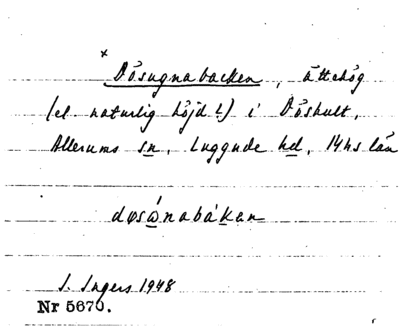 x
Dösugnabacken, ättehög
(el. naturlig höjd?) i Döshult,
Allerums sn, Luggude hd, M-hs län
døsω̲nabák̲an
I. Ingers 1948
Nr 5670.